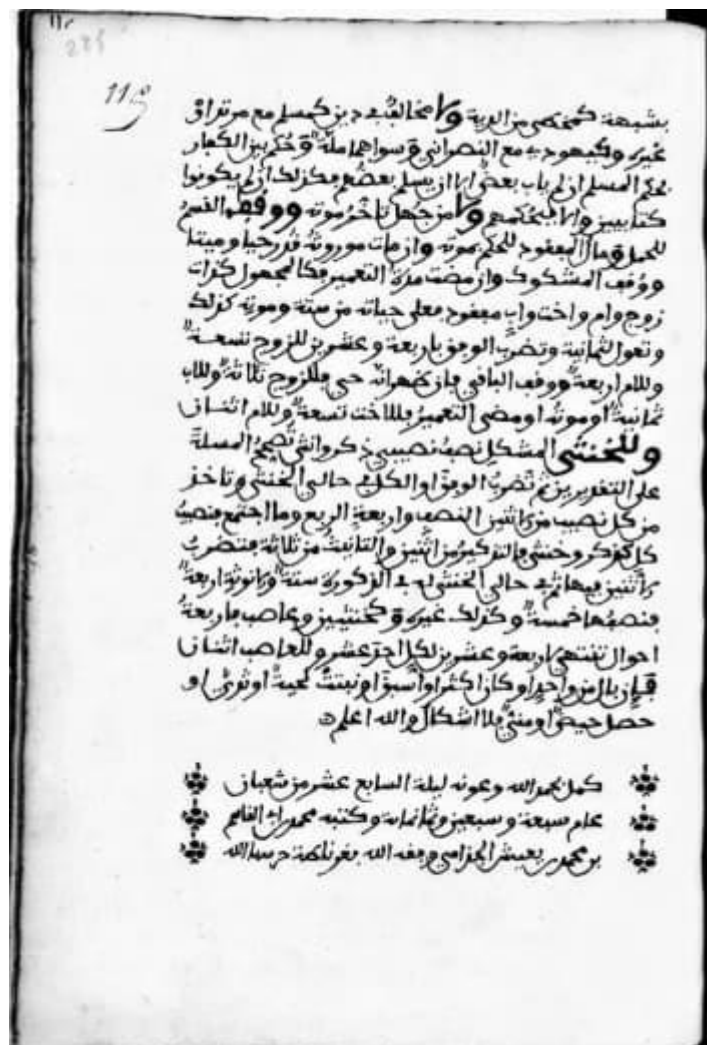 285
115
بشبهة كمخطئ من الدية ولا مخالف في دين كمسلم مع مرتد او
غيره وكيهودي مع النصراني وسواهما ملة وحكم بين الكفار
بحكم المسلم ان لم ياب بعض الا ان يسلم بعضهم فكذلك ان لم يكونوا
كتابيين والا فبحكمهم ولا من جهل تاخر موته ووقف القسم
للحمل ومال المفقود للحكم بموته وان مات موروثه قدر حيا وميتا
ووقف المشكوك وان مضت مدة التعمير فكالمجهول فذات
زوج وام واخت واب مفقود فعلى حياته من ستة وموته كذلك
وتعول لثمانية وتضرب الوفق باربعة وعشرين للزوج تسعة
وللام اربعة ووقف الباقي فان ظهر انه حي فللزوج ثلاثة وللاب
ثمانية او موته او مضى التعمير فللاخت تسعة وللام اثنان
وللخنثى المشكل نصف نصيبي ذكر وانثى تصحح المسلة
على التقديرين ثم تضرب الوفق او الكل في حالتي الخنثى وتاخذ
من كل نصيب من الاثنين النصف واربعة الربع وما اجتمع فنصيب
كل كذكر وخنثى فالتذكير من اثنين والتانيث من ثلاثة فتضرب
الاثنين فيها ثم في حالتي الخنثى له في الذكورة ستة والانوثة اربعة
فنصفها خمسة وكذلك غيره وكخنثيين وعاصب فاربعة
احوال تنتهي لاربعة وعشرين لكل احد عشر وللعاصب اثنان
فان بال من واحد او كان اكثر او اسبق او نبتت لحية او ثدي او
حصل حيض او مني فلا اشكال والله اعلم
كمل بحمد الله وعونه ليلة السابع عشر من شعبان
عام سبعة وسبعين وثمانمائة وكتبه محمد بن القاسم
بن محمد بن يعيش الجذامي وفقه الله بغرناطة حرسها الله